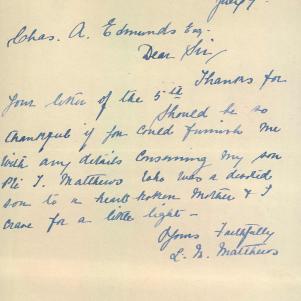 July 7
Chas. A. Edmunds Esq.
Dear Sir,
Thanks for
Your letter of the 5th
Should be so
thankful if you could furnish me
with any details concerning my son
Pte T. Matthews who was a devoted
son to a heart-broken Mother & I
crave for a little light -
Yours Faithfully
L. M. Matthews